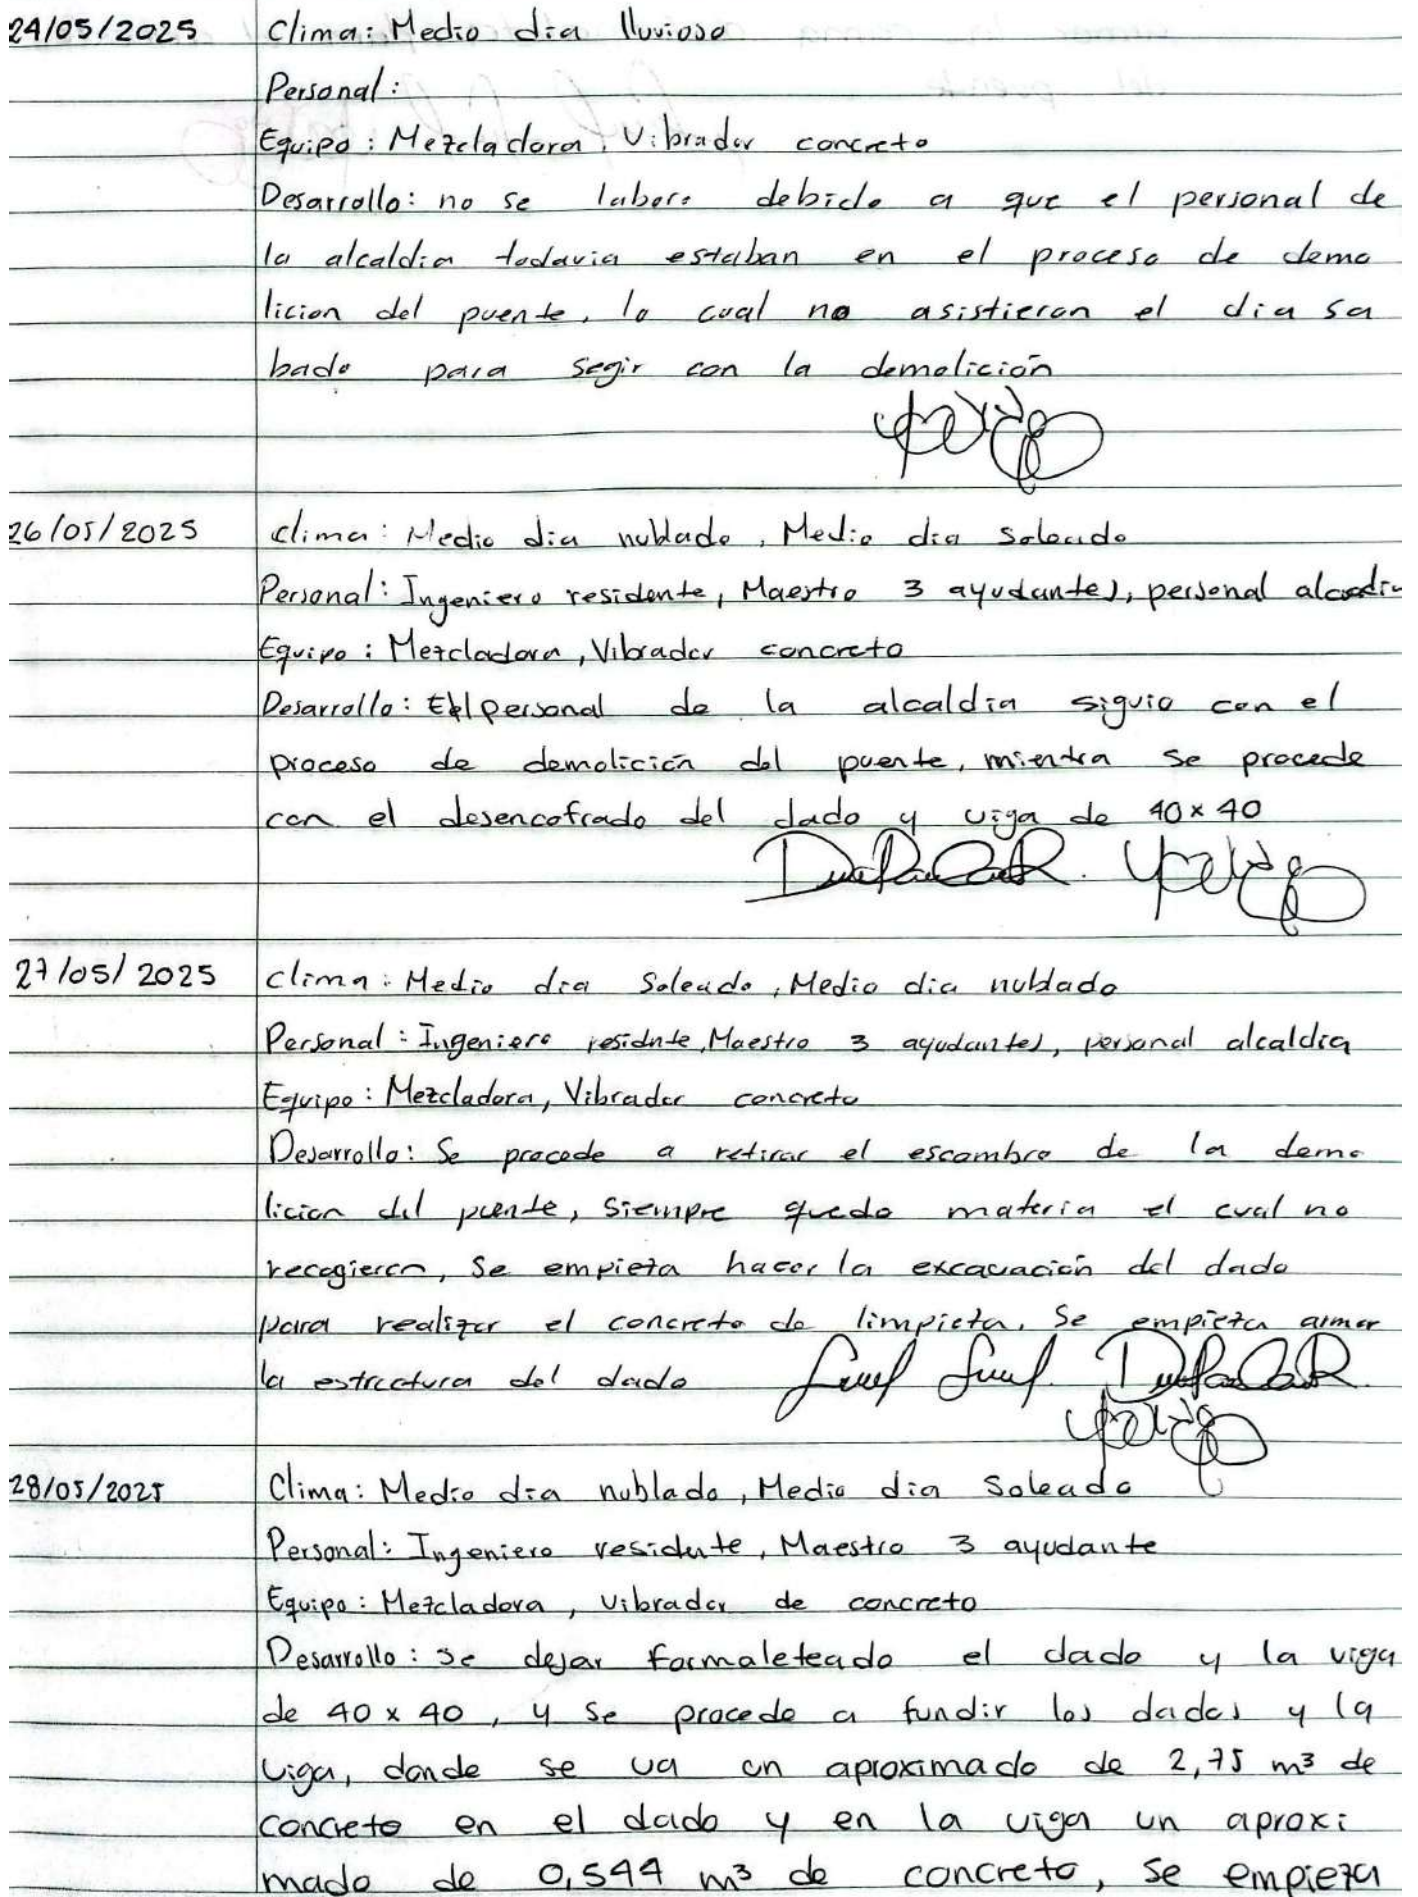 24/05/2025 Clima: Medio dia lluvioso
Personal:
Equipo: Mezcladora, Vibrador concreto
Desarrollo: no se laboro debido a que el personal de
la alcaldia todavia estaban en el proceso de demo
licion del puente, lo cual no asistieron el dia sa
bado para segir con la demolición
26/05/2025 clima: Medio dia nublado, Medio dia Soleado
Personal: Ingeniero residente, Maestro 3 ayudantes, personal
Equipo: Mezcladora, Vibrador concreto
Desarrollo: El personal de la alcaldia siguio con el
proceso de demolición del puente, mientra se procede
con el desencofrado del dado y viga de 40x40
27/05/2025 clima: Medio dia Soleado, Medio dia nublado
Personal: Ingeniero residnte, Maestro 3 ayudantes, personal alcaldia
Equipo: Mezcladora, Vibrador concreto
Desarrollo: Se procede a retirar el escombro de la demo
licion del puente, siempre quedo materia el cual no
recogieron, Se empieza hacer la excavación del dado
para realizar el concreto de limpieza, Se empieza armar
la estructura del dado
28/05/2025 Clima: Medio dia nublado, Medio dia Soleado
Personal: Ingeniero residente, Maestro 3 ayudante
Equipo: Mezcladora, vibrador de concreto
Desarrollo: se dejar formaleteado el dado y la viga
de 40x40, y se procede a fundir los dados y la
viga, donde se va un aproximado de 2,75 m³ de
concreto en el dado y en la viga un aproxi
mado de 0,544 m³ de concreto, se empieza